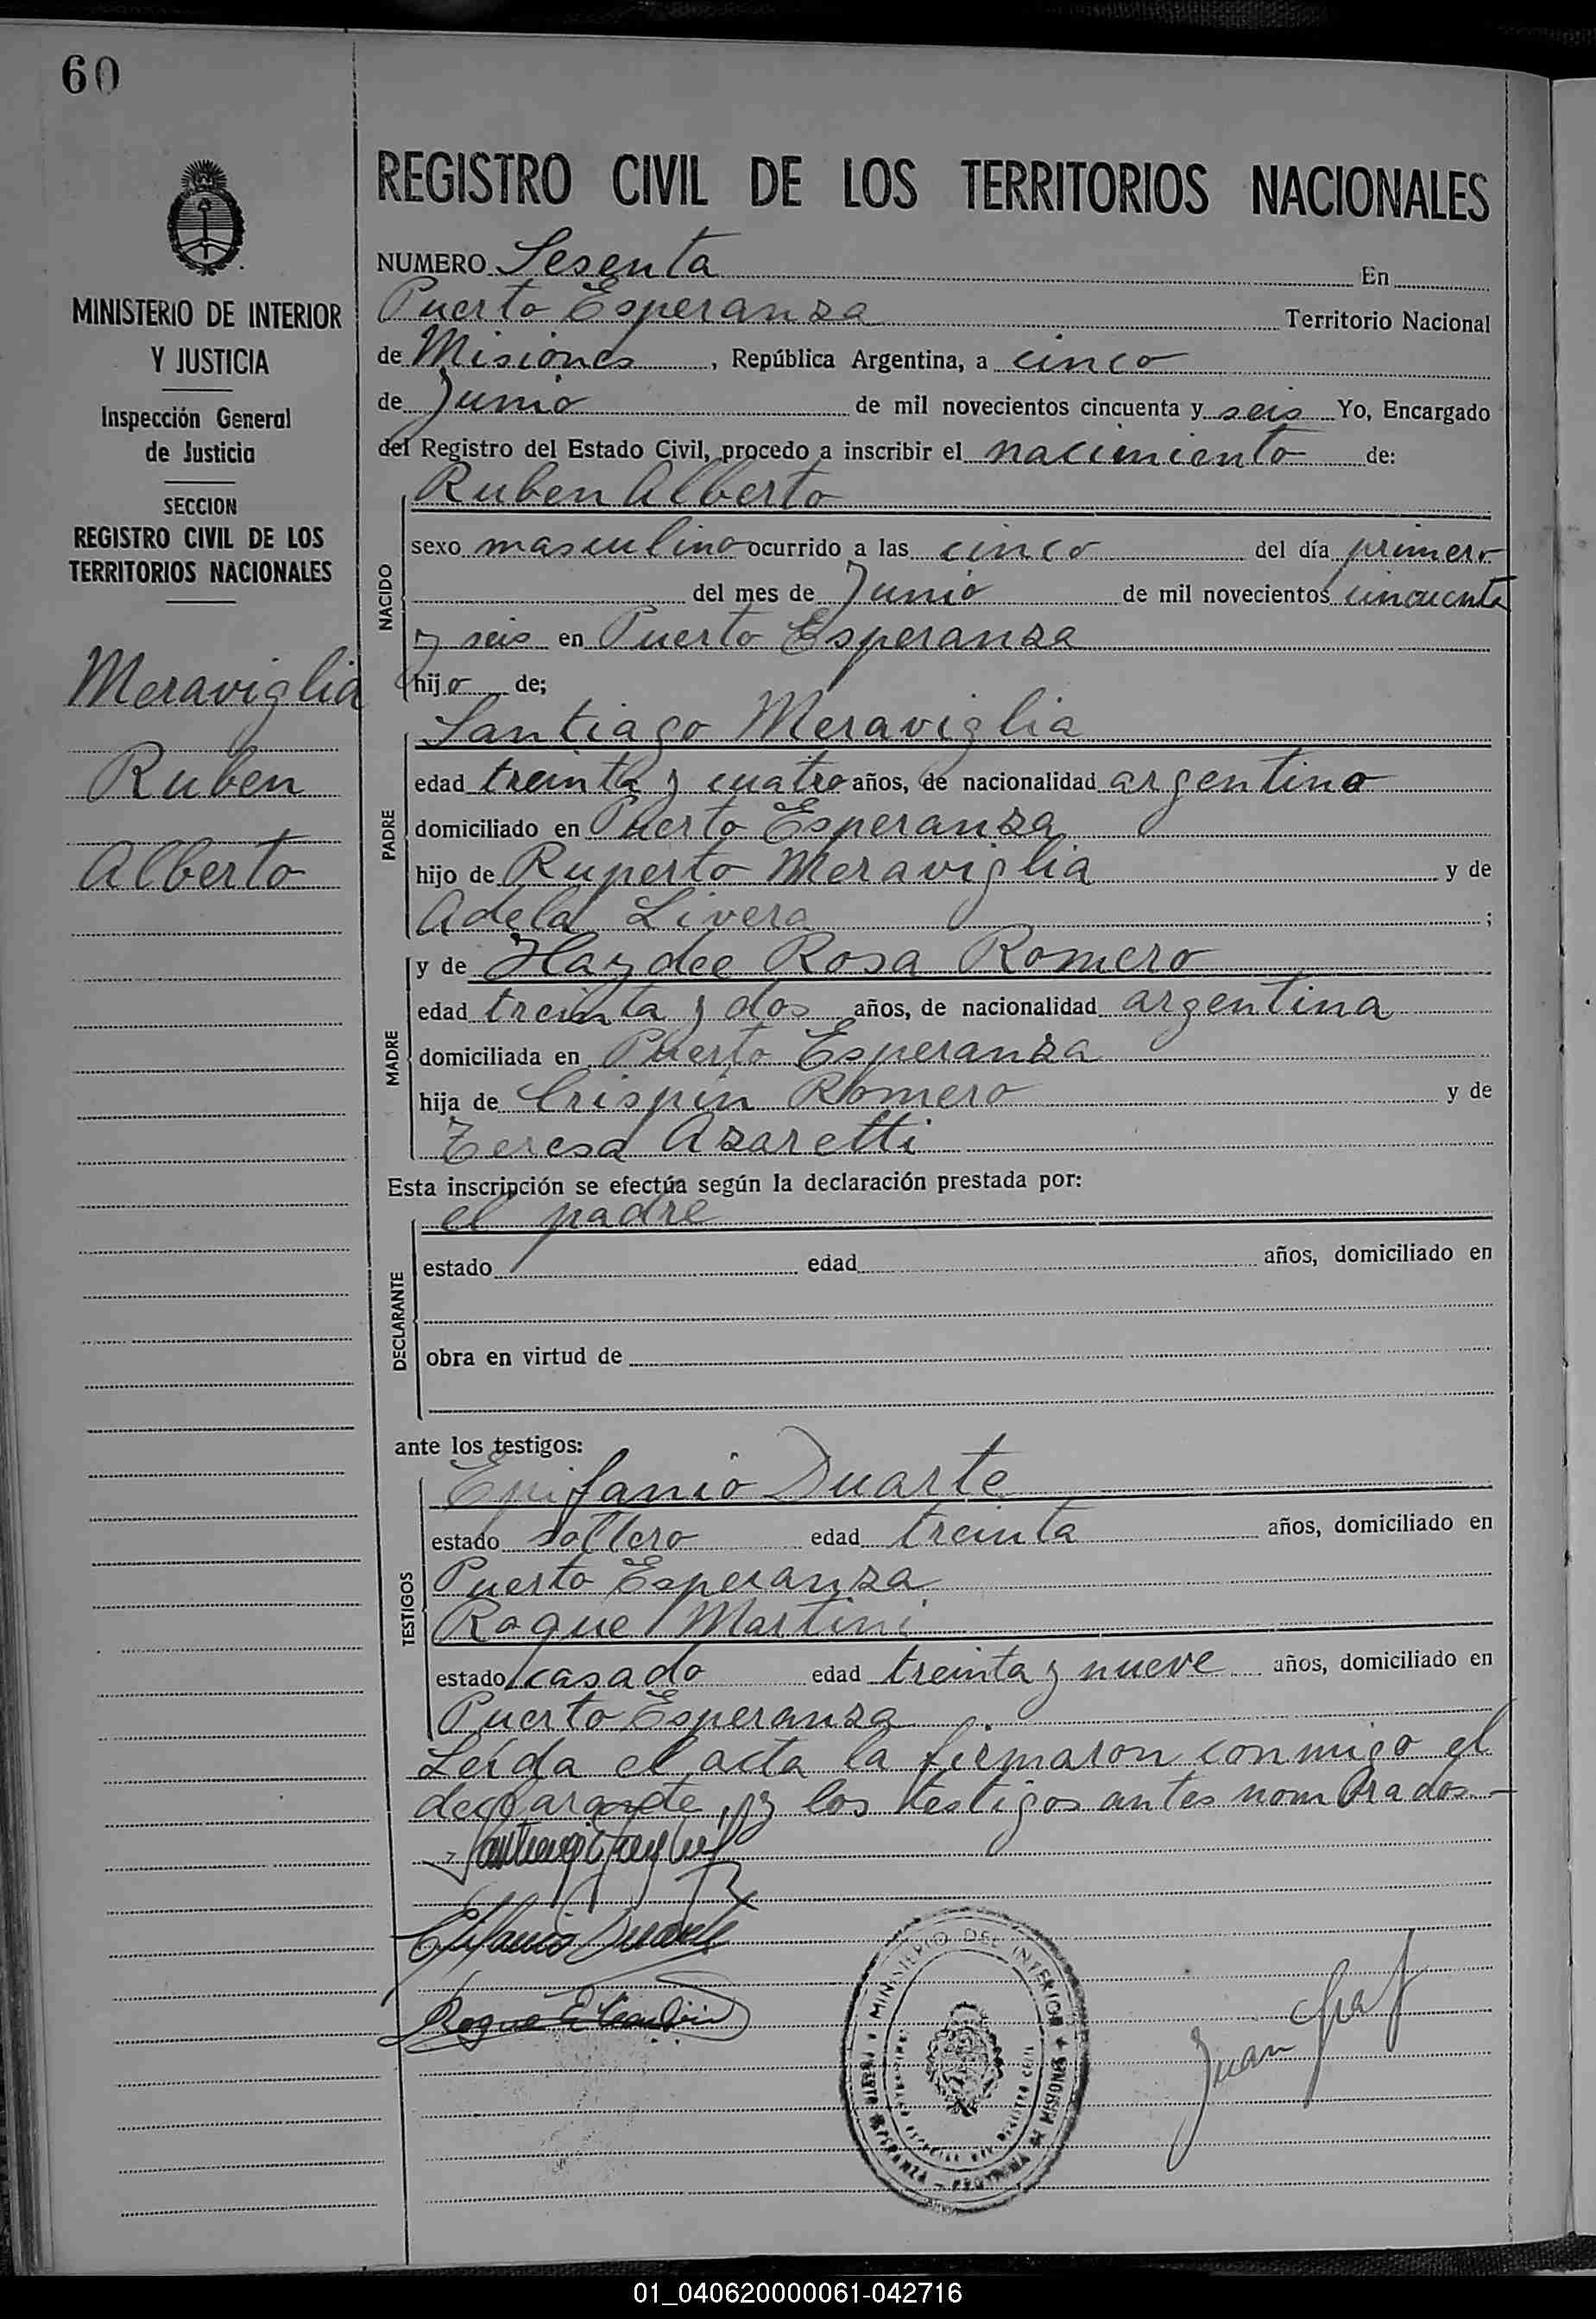 60
REGISTRO CIVIL DE LOS TERRITORIOS NACIONALES
MINISTERIO DE INTERIOR
Y JUSTICIA
Inspección General
de Justicia
SECCION
REGISTRO CIVIL DE LOS
TERRITORIOS NACIONALES
Meraviglia
Ruben
Alberto
NUMERO Sesenta En
Puerto Esperanza Territorio Nacional
de Misiones, República Argentina, a cinco
de Junio de mil novecientos cincuenta y seis Yo, Encargado
del Registro del Estado Civil, procedo a inscribir el nacimiento de:
NACIDO
Ruben Alberto
sexo masculino ocurrido a las cinco del día primero
del mes de Junio de mil novecientos cincuenta
y seis en Puerto Esperanza
hijo de;
PADRE
Santiago Meraviglia
edad treinta y cuatro años, de nacionalidad argentino
domiciliado en Puerto Esperanza
hijo de Ruperto Meraviglia y de
Adela Livera ;
MADRE
y de Haydee Rosa Romero
edad treinta y dos años, de nacionalidad argentina
domiciliada en Puerto Esperanza
hija de Crispin Romero y de
Teresa Azaretti
Esta inscripción se efectúa según la declaración prestada por:
DECLARANTE
el padre
estado edad años, domiciliado en
obra en virtud de
ante los testigos:
TESTIGOS
Epifanio Duarte
estado soltero edad treinta años, domiciliado en
Puerto Esperanza
Roque Martini
estado casado edad treinta y nueve años, domiciliado en
Puerto Esperanza
Leída el acta la firmaron conmigo el
declarante, y los testigos antes nombrados.-
Epifanio Duarte
Roque E
MINISTERIO DEL INTERIOR
PUERTO ESPERANZA - MISIONES
Juan Graf
01_040620000061-042716